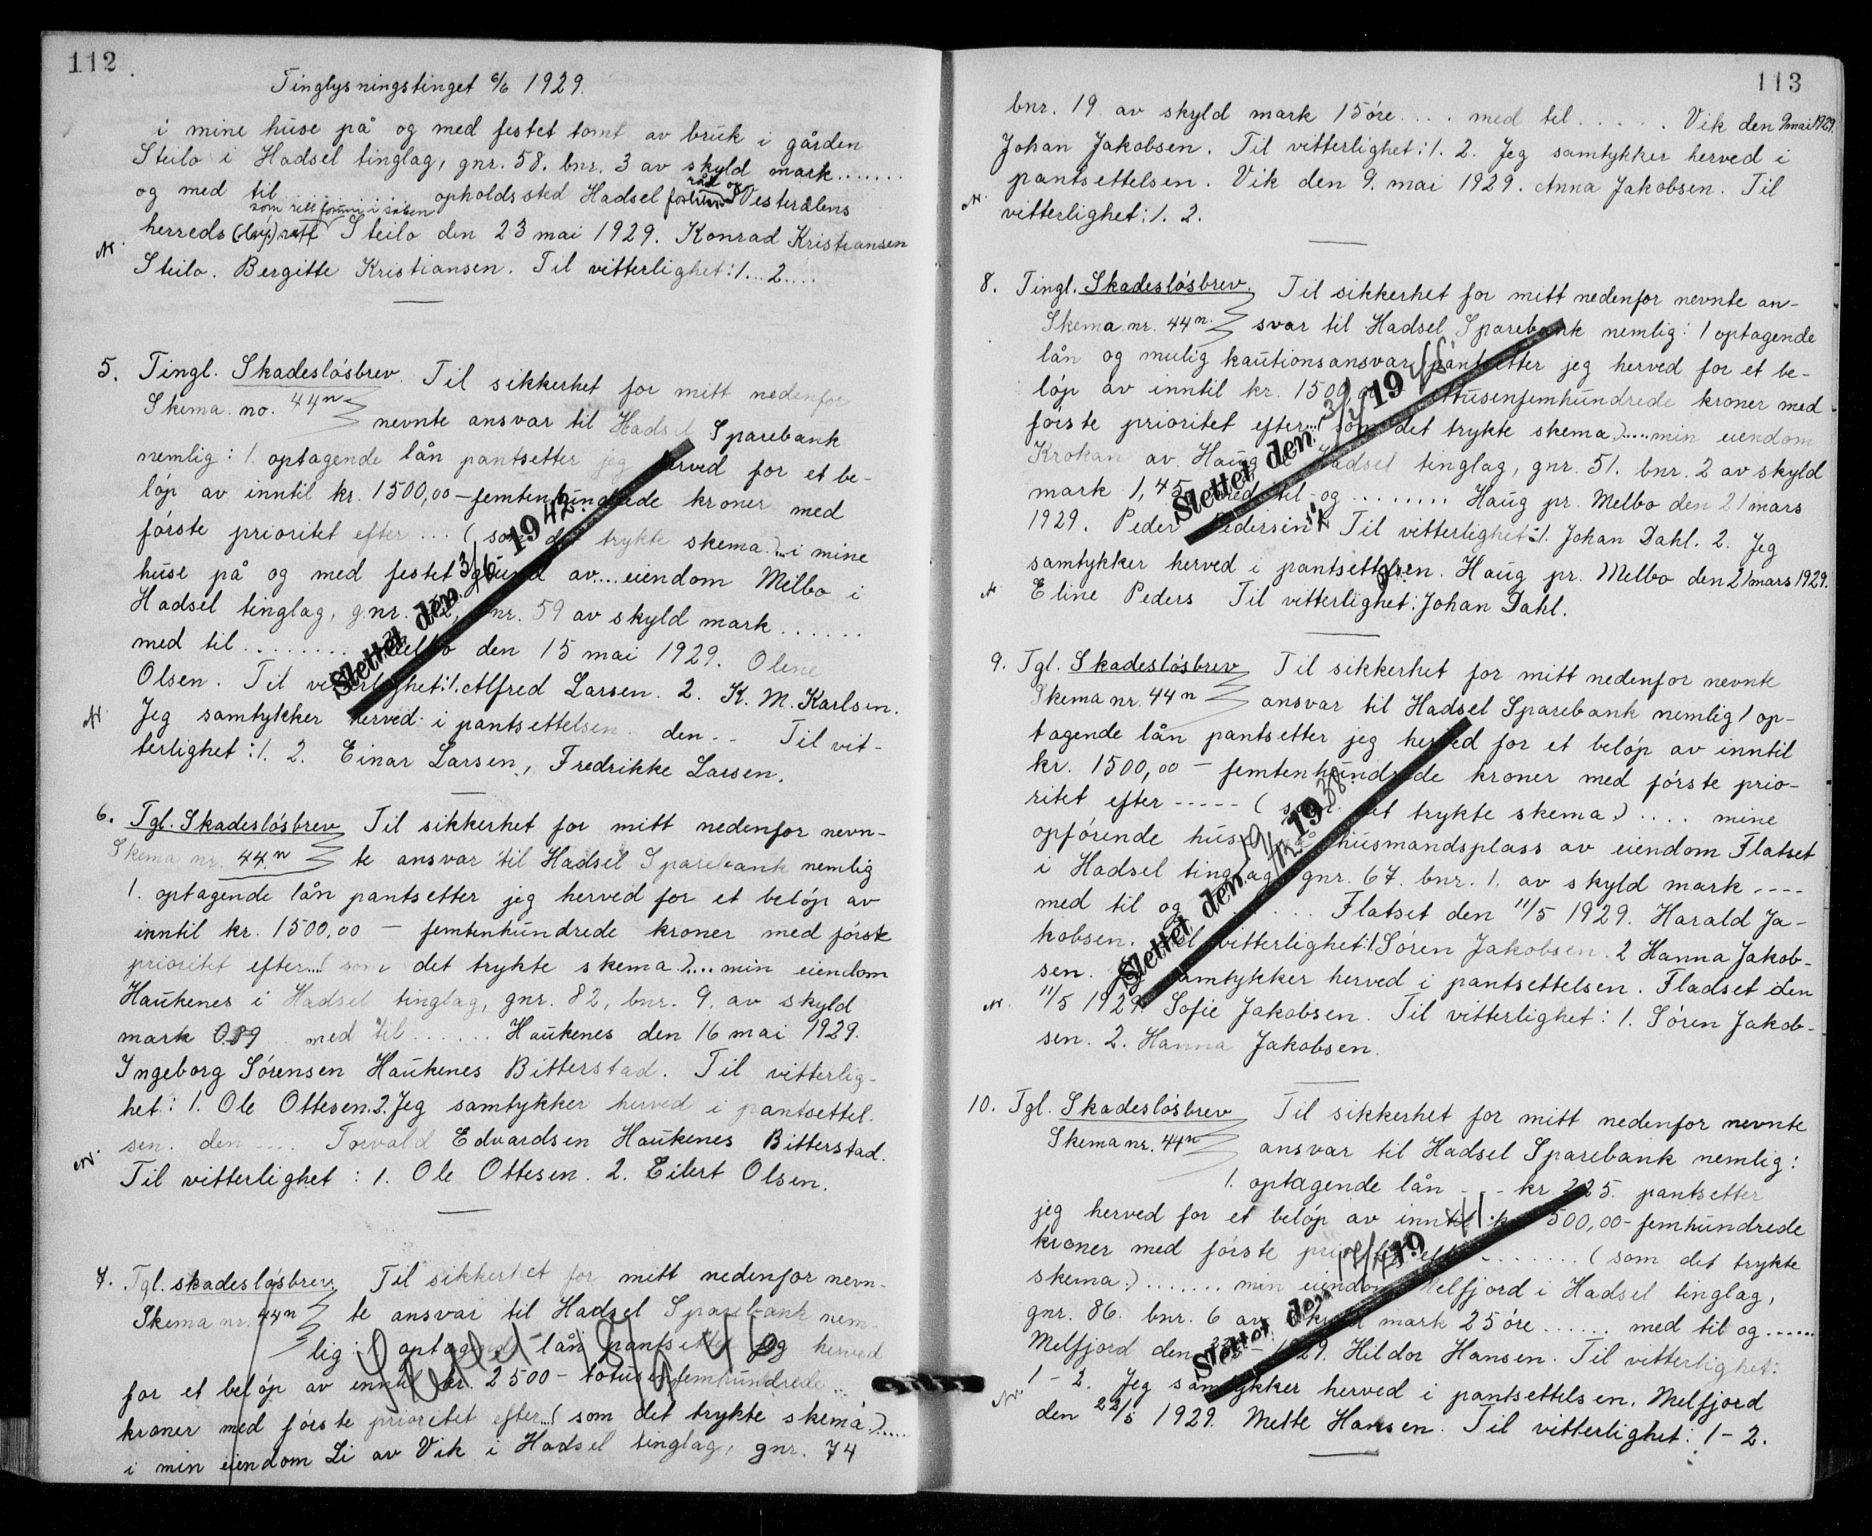 112
Tinglysningstinget 6/6 1929.
i mine huse på og med festet tomt av bruk i gården
Steilo i Hadsel tinglag, gnr. 58. bnr. 3 av skyld mark.......
råd og
og med til opholdssted Hadsel Vesterålens
som rett
herreds Steilo den 23 mai 1929. Konrad Kristiansen
N. Steilo. Bergitte Kristiansen. Til vitterlighet: 1... 2....
5. Tingl. Skadesløsbrev. Til sikkerhet for mitt nedenfor
Skema no. 44n nevnte ansvar til Hadsel Sparebank
nemlig: 1. optagende lån pantsetter jeg herved for et be-
løp av inntil kr. 1500,00 – femtenhundrede kroner med
første prioritet efter .... (som det trykte skema.)... i mine
huse på og med festet grund av... eiendom Melbo i
Hadsel tinglag, gnr. bnr. 59 av skyld mark ......
med til ........ Melbo den 15 mai 1929. Oline
Olsen. Til vitterlighet: 1. Alfred Larsen. 2. K. M. Karlsen.
N. Jeg samtykker herved i pantsettelsen. den.. Til vit-
terlighet: 1. 2. Einar Larsen, Fredrikke Larsen.
Slettet den 3/6 1942.
6. Tgl. Skadesløsbrev Til sikkerhet for mitt nedenfor nevn-
Skema nr. 44n te ansvar til Hadsel Sparebank nemlig
1. optagende lån pantsetter jeg herved for et beløp av
inntil kr. 1500,00 – femtenhundrede kroner med første
prioritet efter...( som det trykte skema.)... min eiendom
Haukenes i Hadsel tinglag, gnr. 82, bnr. 9. av skyld
mark 0,89 med til ...... Haukenes den 16 mai 1929.
Ingeborg Sørensen Haukenes Bitterstad. Til vitterlig-
het: 1. Ole Ottesen. 2. Jeg samtykker herved i pantsettel-
sen. den .... Torvald Edvardsen Haukenes Bitterstad.
N. Til vitterlighet: 1. Ole Ottesen. 2. Eilert Olsen.
7. Tgl. skadesløsbrev Til sikkerhet for mitt nedenfor nevn-
Skema nr. 44n te ansvar til Hadsel Sparebank nem-
lig: 1 optagende lån pantsetter jeg herved
for et beløp av inntil kr. 2500 – totusenfemhundrede ..
kroner med første prioritet efter...( som det trykte skema.).....
i min eiendom Li av Vik i Hadsel tinglag, gnr. 74
Slettet
113
bnr. 19 av skyld mark 15 øre .... med til ..... Vik den 9 mai 1929.
Johan Jakobsen. Til vitterlighet: 1. 2. Jeg samtykker herved i
pantsettelsen. Vik den 9. mai 1929. Anna Jakobsen. Til
N. vitterlighet: 1. 2.
8. Tingl. Skadesløsbrev. Til sikkerhet for mitt nedenfor nevnte an-
Skema nr. 44n. svar til Hadsel Sparebank nemlig: 1 optagende
lån og mulig kautionsansvar pantsetter jeg herved for et be-
løp av inntil kr. 1500,00 tusenfemhundrede kroner med
første prioritet efter...( som det trykte skema.)..... min eiendom
Krokan av Haug i Hadsel tinglag, gnr. 51. bnr. 2 av skyld
mark 1,45 med til og ........ Haug pr. Melbo den 21 mars
1929. Peder Pedersen Til vitterlighet: 1. Johan Dahl. 2. Jeg
samtykker herved i pantsettelsen. Haug pr. Melbo den 21 mars 1929.
N. Eline Peders Til vitterlighet: Johan Dahl.
Slettet den 19
9. Tgl. Skadesløsbrev Til sikkerhet for mitt nedenfor nevnte
Skema nr. 44n ansvar til Hadsel Sparebank nemlig 1 op-
tagende lån pantsetter jeg herved for et beløp av inntil
kr. 1500,00 – femtenhundrede kroner med første prio-
ritet efter ----- ( som det trykte skema.) .... mine
opførende hus husmandsplass av eiendom Flatset
i Hadsel tinglag, gnr. 67. bnr. 1. av skyld mark ----
med til og ...... Flatset den 11/5 1929. Harald Ja-
kobsen. Til vitterlighet: 1 Søren Jakobsen. 2 Hanna Jakob-
sen. Jeg samtykker herved i pantsettelsen. Fladset den
N. 11/5 1929. Sofie Jakobsen. Til vitterlighet: 1. Søren Jakob-
sen. 2. Hanna Jakobsen.
Slettet den 19/12 1938.
10. Tgl. Skadesløsbrev Til sikkerhet for mitt nedenfor nevnte
Skema nr. 44n ansvar til Hadsel Sparebank nemlig:
1. optagende lån - - kr 225. pantsetter
jeg herved for et beløp av inntil kr. 500,00 – femhundrede
kroner med første prioritet efter ........ (som det trykte
skema.) ....... min eiendom Melfjord i Hadsel tinglag,
gnr. 86. bnr. 6 av skyld mark 25 øre ...... med til og ......
Melfjord den 1929. Hildor Hansen. Til vitterlighet:
N. 1 – 2. Jeg samtykker herved i pantsettelsen. Melfjord
den 22/5 1929. Mette Hansen. Til vitterlighet: 1 – 2.
Slettet den 19